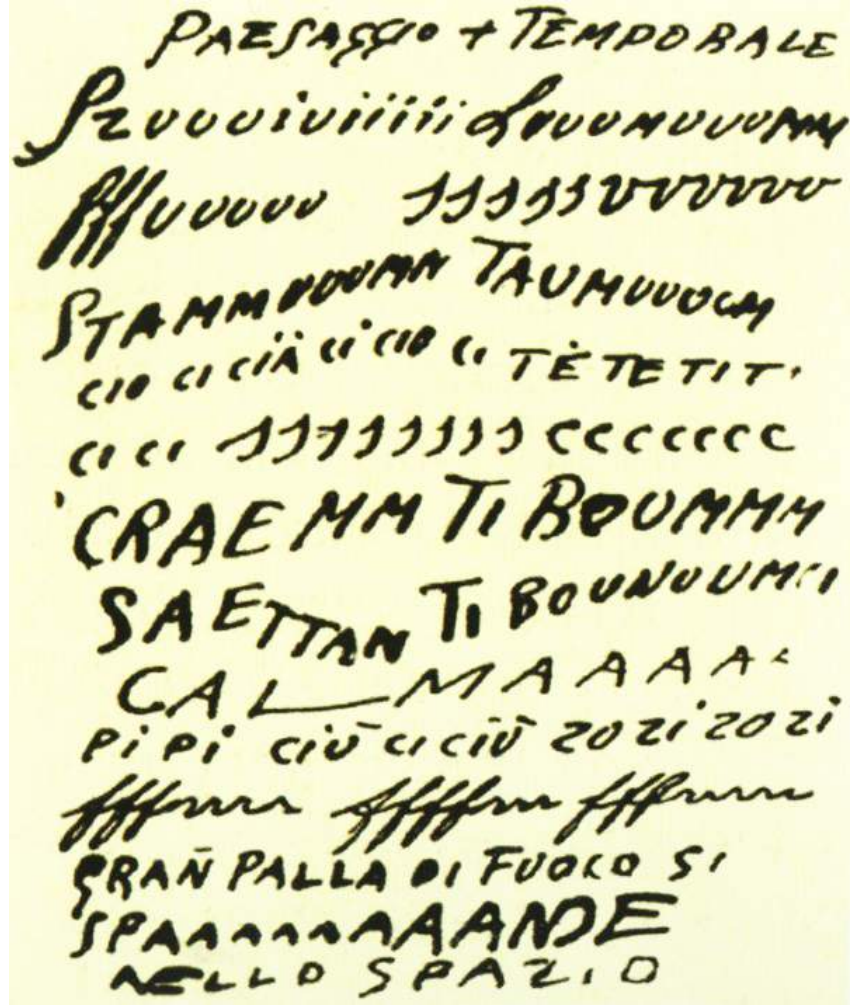 PAESAGGIO + TEMPORALE
Szuuuiuiiiiii Louuumuuuumm
fffuuuuu sssssvvvvvvv
STAMMUUUUMN TAUMUUUUM
cio ci ciä ci cio ci TÈ TE TIT.
ci ci sssssssss ccccccc
CRAE MM TI BOUMMM
SAETTAN TI BOUNUUMCI
CALMAAAAA
Pi Pi ciŭ ci ciŭ zozizozi
fffrurr fffffrr fffrurr
GRAÑ PALLA DI FUOCO SI
SPAAAAAAAAANDE
NELLO SPAZIO